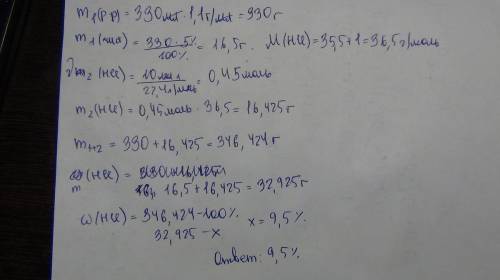 m₁(р-р) = 330 мл · 1,1 г/мл = 330 г
m₁(чив) = 330 · 5% / 100% = 16,5 г. M(HCl) = 35,5 + 1 = 36,5 г/моль
₂(HCl) = 10 / 22,4 л/моль = 0,45 моль
m₂(HCl) = 0,45 моль · 36,5 = 16,425 г
m₁₊₂ = 330 + 16,425 = 346,424 г
m(HCl) = 16,5 + 16,425 = 32,925 г
ω(HCl) = 346,424 – 100%. x = 9,5%
32,925 – x
Ответ: 9,5%